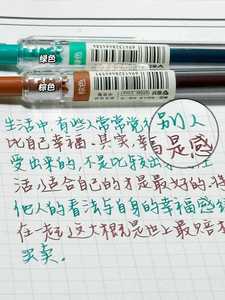 绿色
棕色
棕色
生活中,有些人常常觉得别人
比自己幸福.其实,幸福是感
受出来的,不是比较出来的.生
活,适合自己的才是最好的,将
他人的看法与自身的幸福感绑
在一起,这大概就是世上最赔本
买卖.
是感